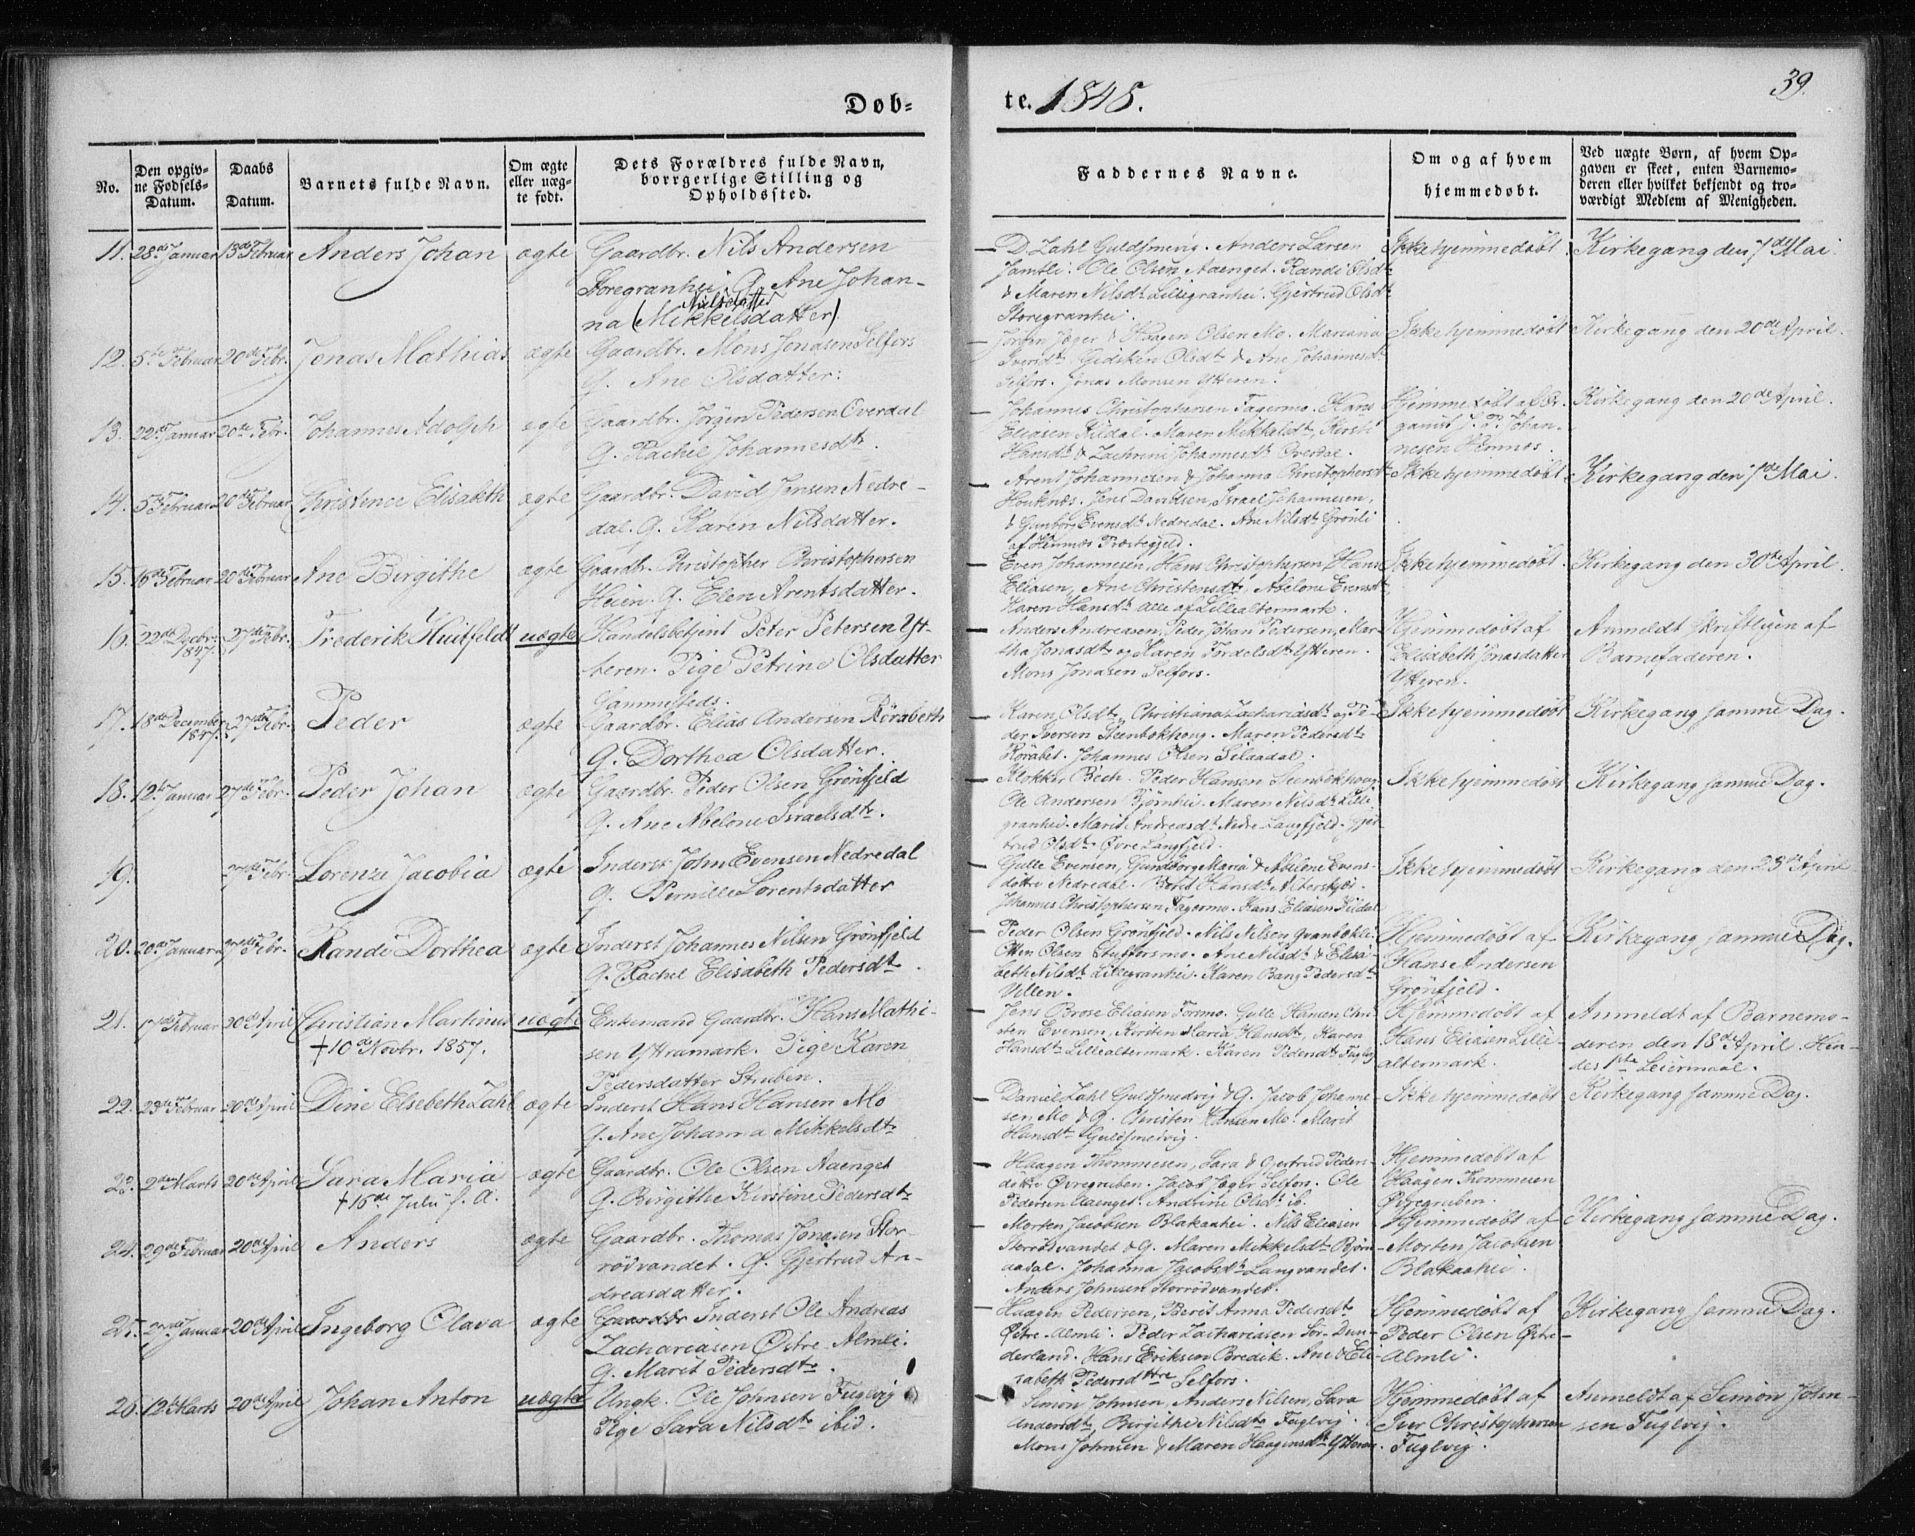 39.
Døb-
te. 1848.
No.
Den opgiv-
ne Fødsels-
Datum.
Daabs
Datum.
Barnets fulde Navn.
Om ægte
eller uæg-
te født.
Dets Forældres fulde Navn,
borrgerlige Stilling og
Opholdssted.
Faddernes Navne.
Om og af hvem
hjemmedøbt.
Ved uægte Børn, af hvem Op-
gaven er skeet, enten Barnemo-
deren eller hvilket bekjendt og tro-
værdigt Medlem af Menigheden.
11. 28de Januar 13de Februar Anders Johan ægte
Gaardbr. Nils Andersen
Storegranhei. G. Ane Johan-
Nielsdatter
na (Mikkelsdatter)
D. Zahl Guldsmevig. Anders Larsen
Jamtli. Ole Olsen Aaenget. Randi Olsdt
& Maren Nilsdt. Lillegranhei. Gjertrud Olsdt
Storegranhei.
Ikke hjemmedøbt.
Kirkegang den 7de Mai.
12. 5te Februar 20de Febr. Jonas Mathias ægte
Gaardbr. Mons Jonasen Selfors
G. Ane Olsdatter.
Jørgen Jæger & Haagen Olsen Mo. Mariana
Iversdt. Gidiken Olsdt & Ane Johannesdt
Selfors. Jonas Monsen Ytteren.
Ikke hjemmedøbt
Kirkegang den 20de April.
13. 22de Januar 20de Febr. Johannes Adolph ægte
Gaardbr. Jørgen Pedersen Overdal
G. Rachel Johannesdt.
Johannes Christophersen Fagermo. Hans
Eliasen Kildal. Maren Mikkelsdt, Kirsti
Hansdt & Zachrine Johannesdt Overdal.
Hjemmedøbt af Or-
ganist J. P. Johan-
nesen Hemnes.
Kirkegang den 20de April.
14. 5te Februar 20de Februar Christence Elisabeth ægte
Gaardbr. David Jensen Nedre-
dal. G. Karen Nilsdatter.
Arent Johannesen & Johanna Christophersdt
Houknæs. Jens Davidsen, Israel Johannesen,
& Gunbor Evensdt Nedredal. Ane Nilsdt Grønli
af Hemnæs Præstegjeld.
Ikke hjemmedøbt
Kirkegang den 7de Mai.
15. 16de Februar 20de Februar Ane Birgithe ægte
Gaardbr. Christopher Christophersen
Heien. G. Elen Arentsdatter.
Even Johannesen, Hans Christophersen, Hans
Eliasen, Ane Christensdt, Abelone Evensdt,
Karen Hansdt alle af Lillealtermark.
Ikke hjemmedøbt.
Kirkegang den 30te April.
16. 22de Decbr.
1847. 27de Febr. Frederik Huitfeldt uægte
Handelsbetjent Peter Petersen Yt-
teren. Pige Petrine Olsdatter
Sammesteds.
Anders Andreasen, Peder Johan Pedersen, Mar-
tha Jonasdt og Karen Tordelsdt Ytteren.
Mons Jonasen Selfors.
Hjemmedøbt af
Elisabeth Jonasdatter
Ytteren.
Anmeldt skriftligen af
Barnefaderen.
17. 18de December
1847. 27de Febr. Peder ægte
Gaardbr. Elias Andersen Rørabeth
G. Dorthea Olsdatter.
Karen Olsdt, Christiana Zachariasdt og Pe-
der Iversen Steenbokhoug. Maren Pedersdt
Rørabet. Johannes Olsen Silaadal.
Ikke hjemmedøbt
Kirkegang samme Dag.
18. 12te Januar 27de Febr. Peder Johan ægte
Gaardbr. Peder Olsen Grønfjeld
G. Ane Abelone Israelsdt.
Klokker Bech. Peder Hansen Steenbokhoug,
Ole Andersen Bjørnhei. Maren Nilsdt Lille-
granhei. Marit Andreasdt Nedre-Langfjeld. Gjer-
trud Olsdt. Øvre Langfjeld.
Ikke hjemmedøbt
Kirkegang samme Dag.
19. 27de Febr. Lorenze Jacobia ægte
Inderst John Evensen Nedredal
G. Pernille Lorentsdatter
Gulle Evensen, Gundborg Maria & Abelone Evens-
døttre Nedredal. Hansdt. Alterskjær.
Johannes Christophersen Fagermo. Hans Eliasen Kildal
Ikke hjemmedøbt
Kirkegang den 23de April
20. 20de Januar 27de Febr. Randi Dorthea ægte
Inderst Johannes Nilsen Grønfjeld
G. Rachel Elisabeth Pedersdt.
Peder Olsen Grønfjeld. Nils Nilsen Granbakli.
Otten Olsen Stufforsmo. Ane Nilsdt & Elisa-
beth Nilsdt Lillegranhei. Karen Bang Pedersdt
Villen.
Hjemmedøbt af
Hans Andersen
Grønfjeld.
Kirkegang samme Dag.
21. 17de Februar 20de April Christian Martinus uægte
† 10de Novbr. 1857.
Enkemand Gaardbr. Hans Mathi-
sen Yttramark. Pige Karen
Pedersdatter Struben.
Jens Brose Eliasen Formo. Gulle Hansen Chri-
sten Evensen, Kirsten Maria Hansdt, Karen
Hansdt Lillealtermark. Karen Pedersdt Fuglvig
Hjemmedøbt af
Hans Eliasen Lille-
altermark.
Anmeldt af Barnemo-
deren den 18de April. Hen-
des 1ste Leiermaal.
22. 23de Februar 20de April Dine Elsebeth Zahl ægte
Inderst Hans Hansen Mo
G. Ane Johanna Mikkelsdt.
Daniel Zahl Guldsmedvig & G. Jacob Johanne-
sen Mo & G. Christen Hansen Mo. Marit
Hansdt Guldsmedvig.
Ikke hjemmedøbt
Kirkegang samme Dag.
23. 2den Marts 20de April Sara Maria ægte
† 16de Juli s. A.
Gaardbr. Ole Olsen Aaenget
G. Birgithe Kirstine Pedersdt.
Haagen Thommesen, Sara & Gjertrud Peders-
døttre Øvregruben. Jacob Jæger Selfors. Ole
Pedersen Aaenget. Andrine Olsdt ib.
Hjemmedøbt af
Haagen Thommesen
Øvregruben.
24. 29de Februar 20de April Anders ægte
Gaardbr. Thomas Jonasen Stor-
rødvandet. G. Gjertrud An-
dreasdatter.
Morten Jacobsen Blakaahei. Nils Eliasen
Storrødvandet & G. Maren Mikkelsdt Bjørn-
aadal. Johanna Jacobsdt Langvandet.
Anders Johnsen Storrødvandet.
Hjemmedøbt af
Morten Jacobsen
Blakaahei.
Kirkegang samme Dag.
25. 27de Januar 20de April Ingeborg Olava ægte
Gaardbr Inderst Ole Andreas
Zachariasen Østre Almli.
G. Maret Pedersdt.
Haagen Pedersen, Berit Anna Pedersdt
Østre-Almli. Peder Zachariasen Sør-Dun-
derland. Hans Eriksen Bredik. Ane & Eli-
sabeth Pedersdttre Selfors.
Hjemmedøbt af
Peder Olsen Østre-
Almli.
Kirkegang samme Dag.
26. 12te Marts 20de April Johan Anton uægte
Ungk. Ole Johnsen Fuglvig
Pige Sara Nilsdt ibid.
Simon Johnsen, Anders Nilsen, Sara
Andersdt. Birgithe Nilsdt Fuglvig.
Mons Johnsen & Maren Haagensdt Ytteren.
Hjemmedøbt af
Iver Christophersen
Fuglvig.
Anmeldt af Simon John-
sen Fuglvig.